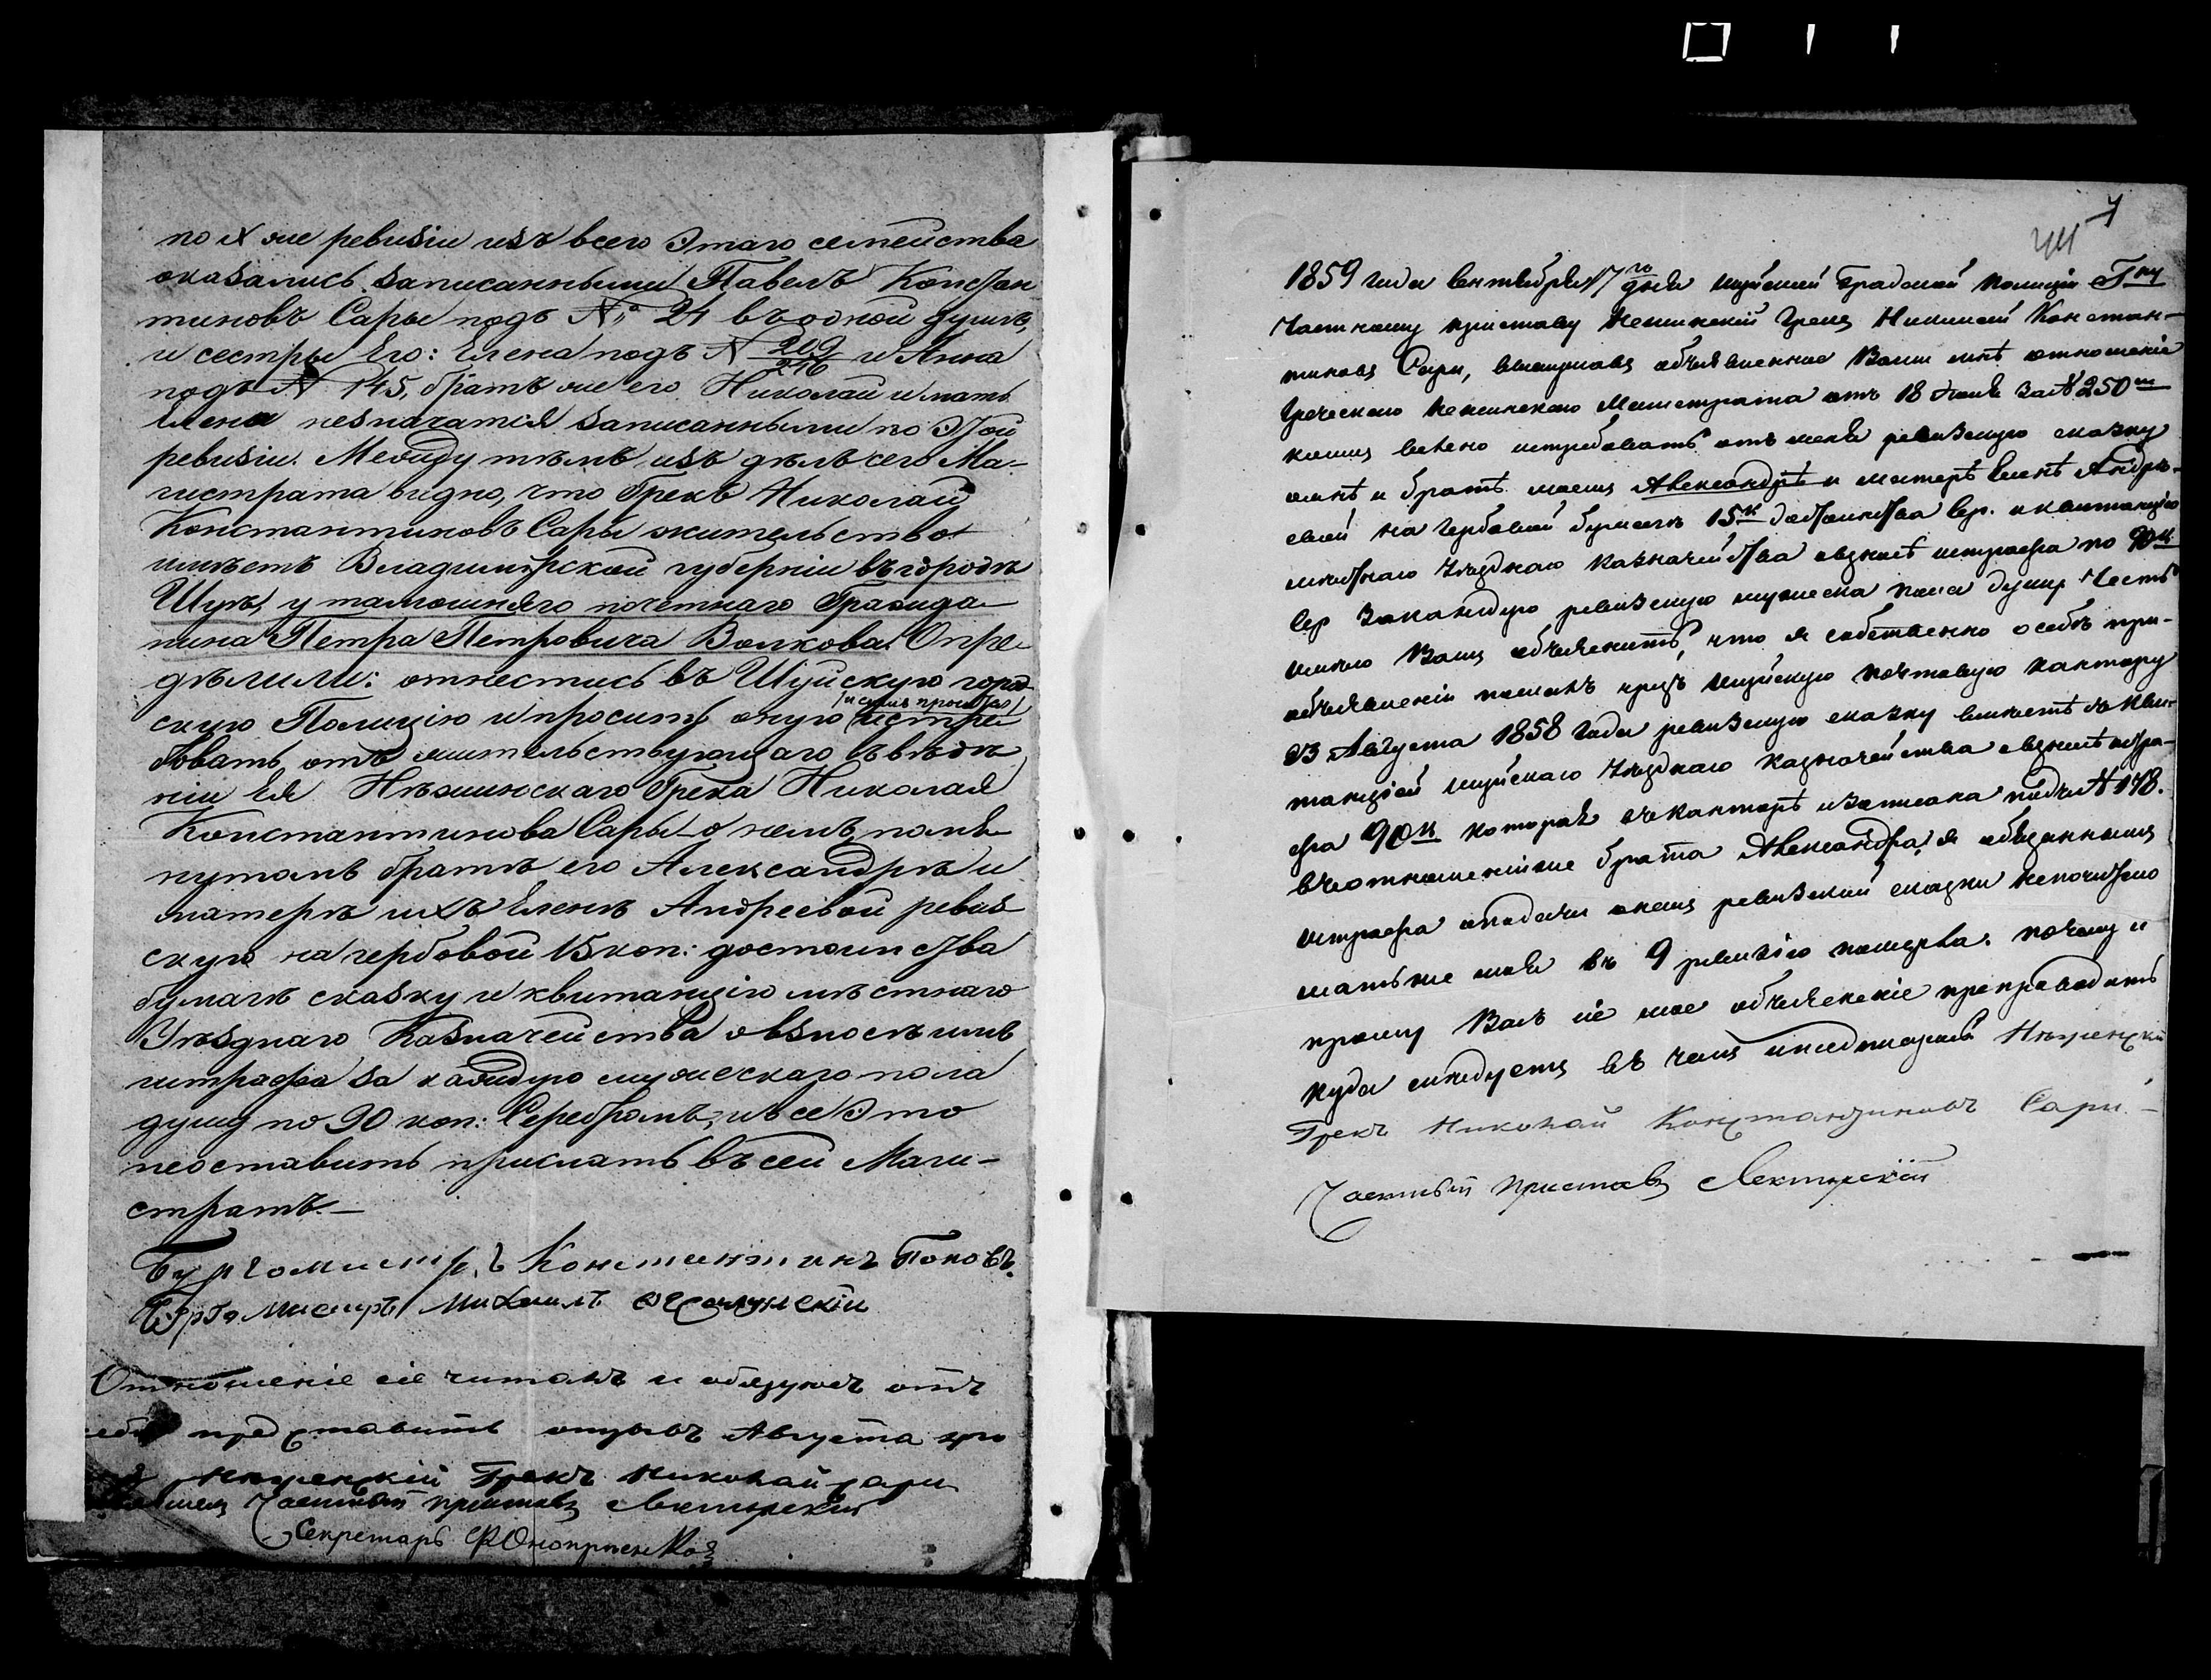 по X же ревизіи изъ всего Этаго семейства
оказались записанными Павелъ Констан
тиновъ Сары подъ № 24 въ одной душѣ,
и сестры Его: Елена подъ № 209/216 и Анна
подъ № 145, братъ же его Николай и мать
Елена незначатся записанными по Этой
ревизіи. Между тѣмъ изъ дѣлъ сего Ма-
гистрата видно, что Грекъ Николай
Константиновъ Сары жительство
имѣетъ Владимірской губерніи въ городѣ
Шуѣ, у тамошняго почетнаго Гражда
нина Петра Петровича Волкова. Опре
дѣлили: отнестись въ Шуйскую город
скую Полицію и просить оную (истре
бовать отъ жительствующаго въ вѣдѣ
ніи Ея Нѣжинскаго Грека Николая
Константинова Сары о немъ, помя
нутомъ братѣ его Александрѣ и
матерѣ ихъ Еленѣ Андреевой ревиз
скую на гербовой 15 коп: достоинства
бумагѣ сказку и квитанцію мѣстнаго
Уѣзднаго Казначейства о взносѣ имъ
штрафа за каждую мужескаго пола
душу по 90 коп: Серебромъ, и все Это
неоставить прислать въ сей Маги-
стратъ.—
Бургомистръ Константинъ Поповъ.
Бургомистръ Михаилъ
Отношеніе сіе читалъ и обязуюсь отъ
себя представить отзывъ Августа
Нѣжинскій Грекъ Николай Сари
Частный приставъ
Секретарь
7
1859 года Сентября 17го дня Шуйской Градской Полиціи Гну
Частному приставу Нежинскій Грекъ Николай Констан-
тиновъ Сари, выслушавъ объявленное Вами мнѣ отношеніе
Греческаго Нежинскаго Магистрата отъ 18 Іюля за № 250м
коимъ велено истребовать отъ меня ревизскую сказку
омнѣ и братѣ моемъ Александрѣ и матерѣ Еленѣ Андре-
евой на Гербовой бумагѣ 15к достоинства Сер. и квитанцію
мѣстнаго Уѣзднаго Казначейства овзносѣ штрафа по 90к
Сер за каждую ревизскую мужеска пола душу. Честь
имѣю Вамъ объяснить, что я собственно о себѣ при
объявленіи послалъ чрезъ Шуйскую почтовую кантору
23 Августа 1858 года ревизскую сказку вместѣ съ кви-
танціей Шуйскаго Уѣзднаго Казначейства овзносѣ штра-
фа 90к которая въ Канторѣ и записана подъ № 148.
въ отношеніи же брата Александра, я обязаннымъ
штрафа и подачи онемъ ревизской сказки непочитаю
мать же моя въ 9 ревизію померла. почему и
прошу Васъ сіе мое объясненіе препроводить
куда слѣдуетъ въ чемъ и подписуюсь Нѣжинскій
Грекъ Николай Константиновъ Сари.—
Частный Приставъ